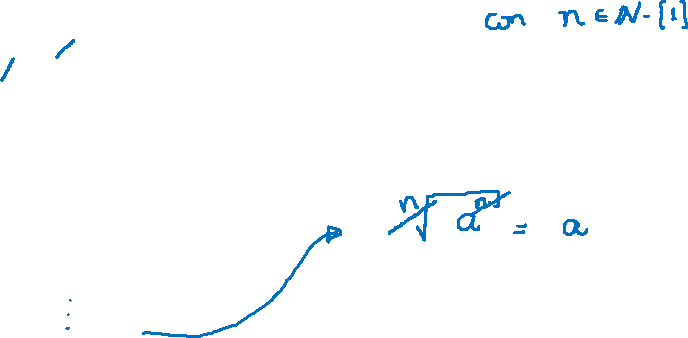 con n ∈ N - {1}
ⁿ√aⁿ = a